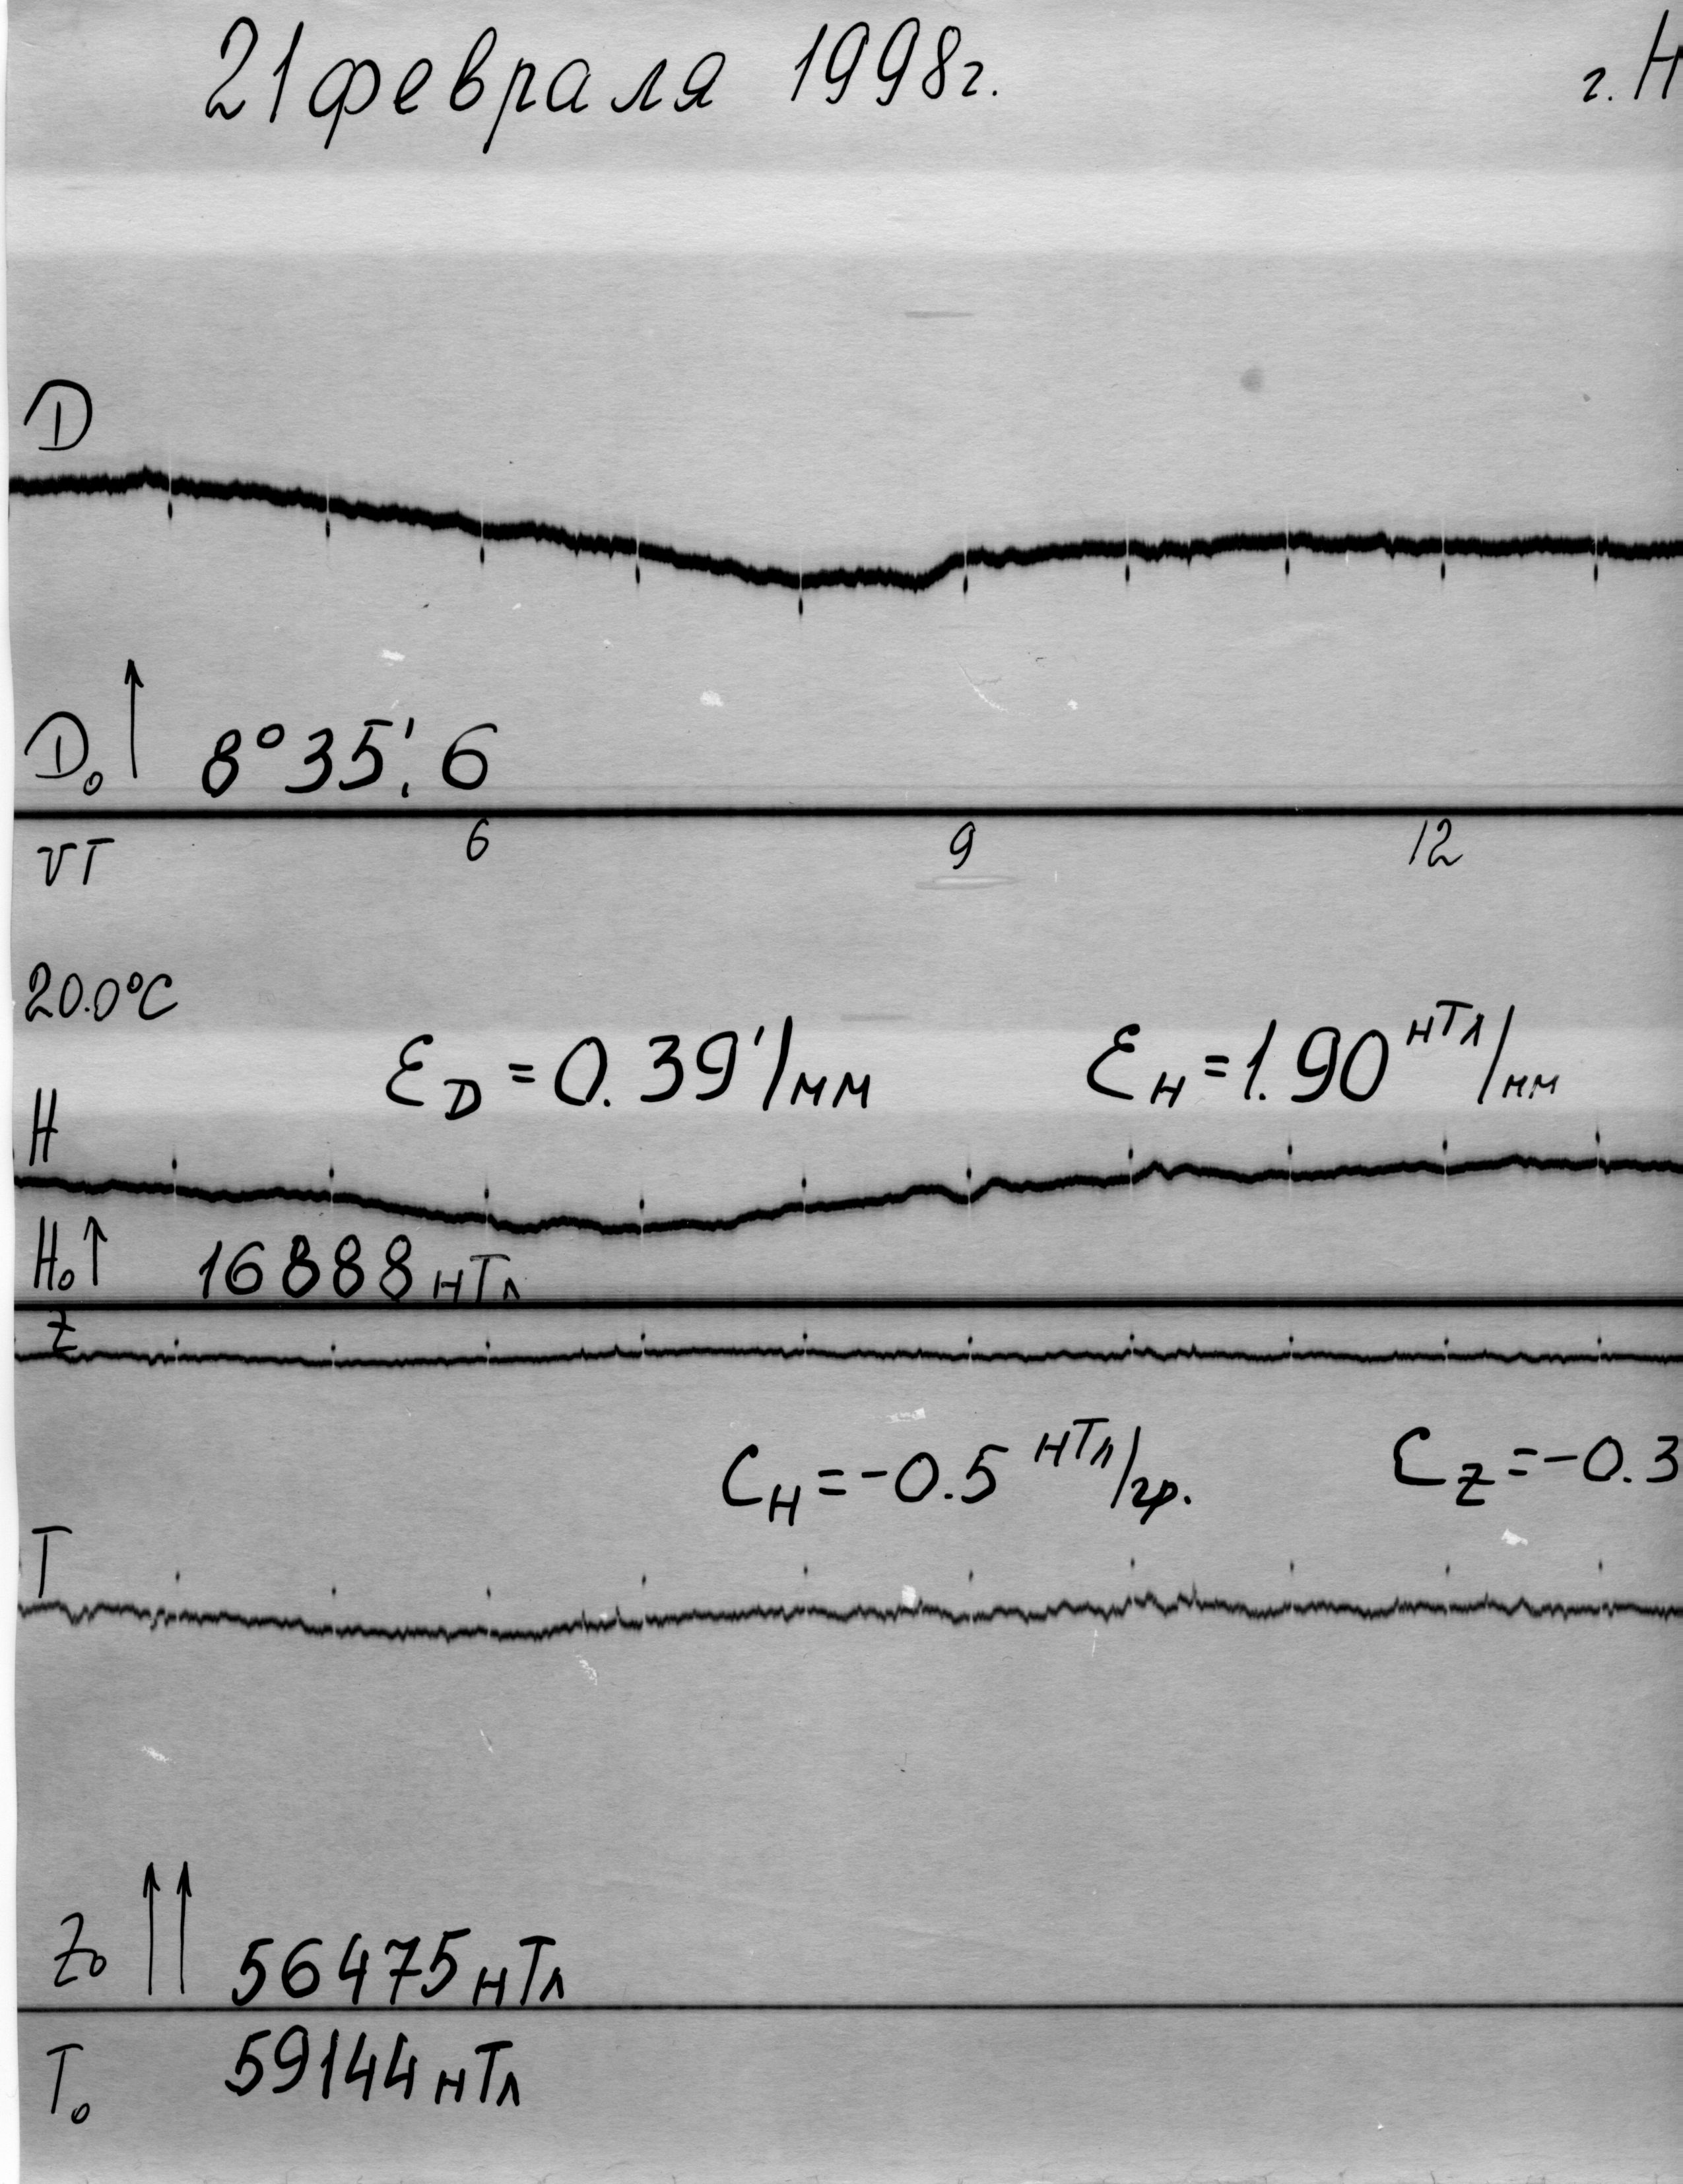 21 февраля 1998г.
г. Н
D
D₀↑ 8°35.′6
UT 6 9 12
20.0°C
ℰD = 0.39′/мм ℰH = 1.90 нТл/мм
H
H₀↑ 16888 нТл
Z
CH = -0.5 нТл/гр. CZ = -0.3
T
Z₀ ↑↑ 56475 нТл
T₀ 59144 нТл